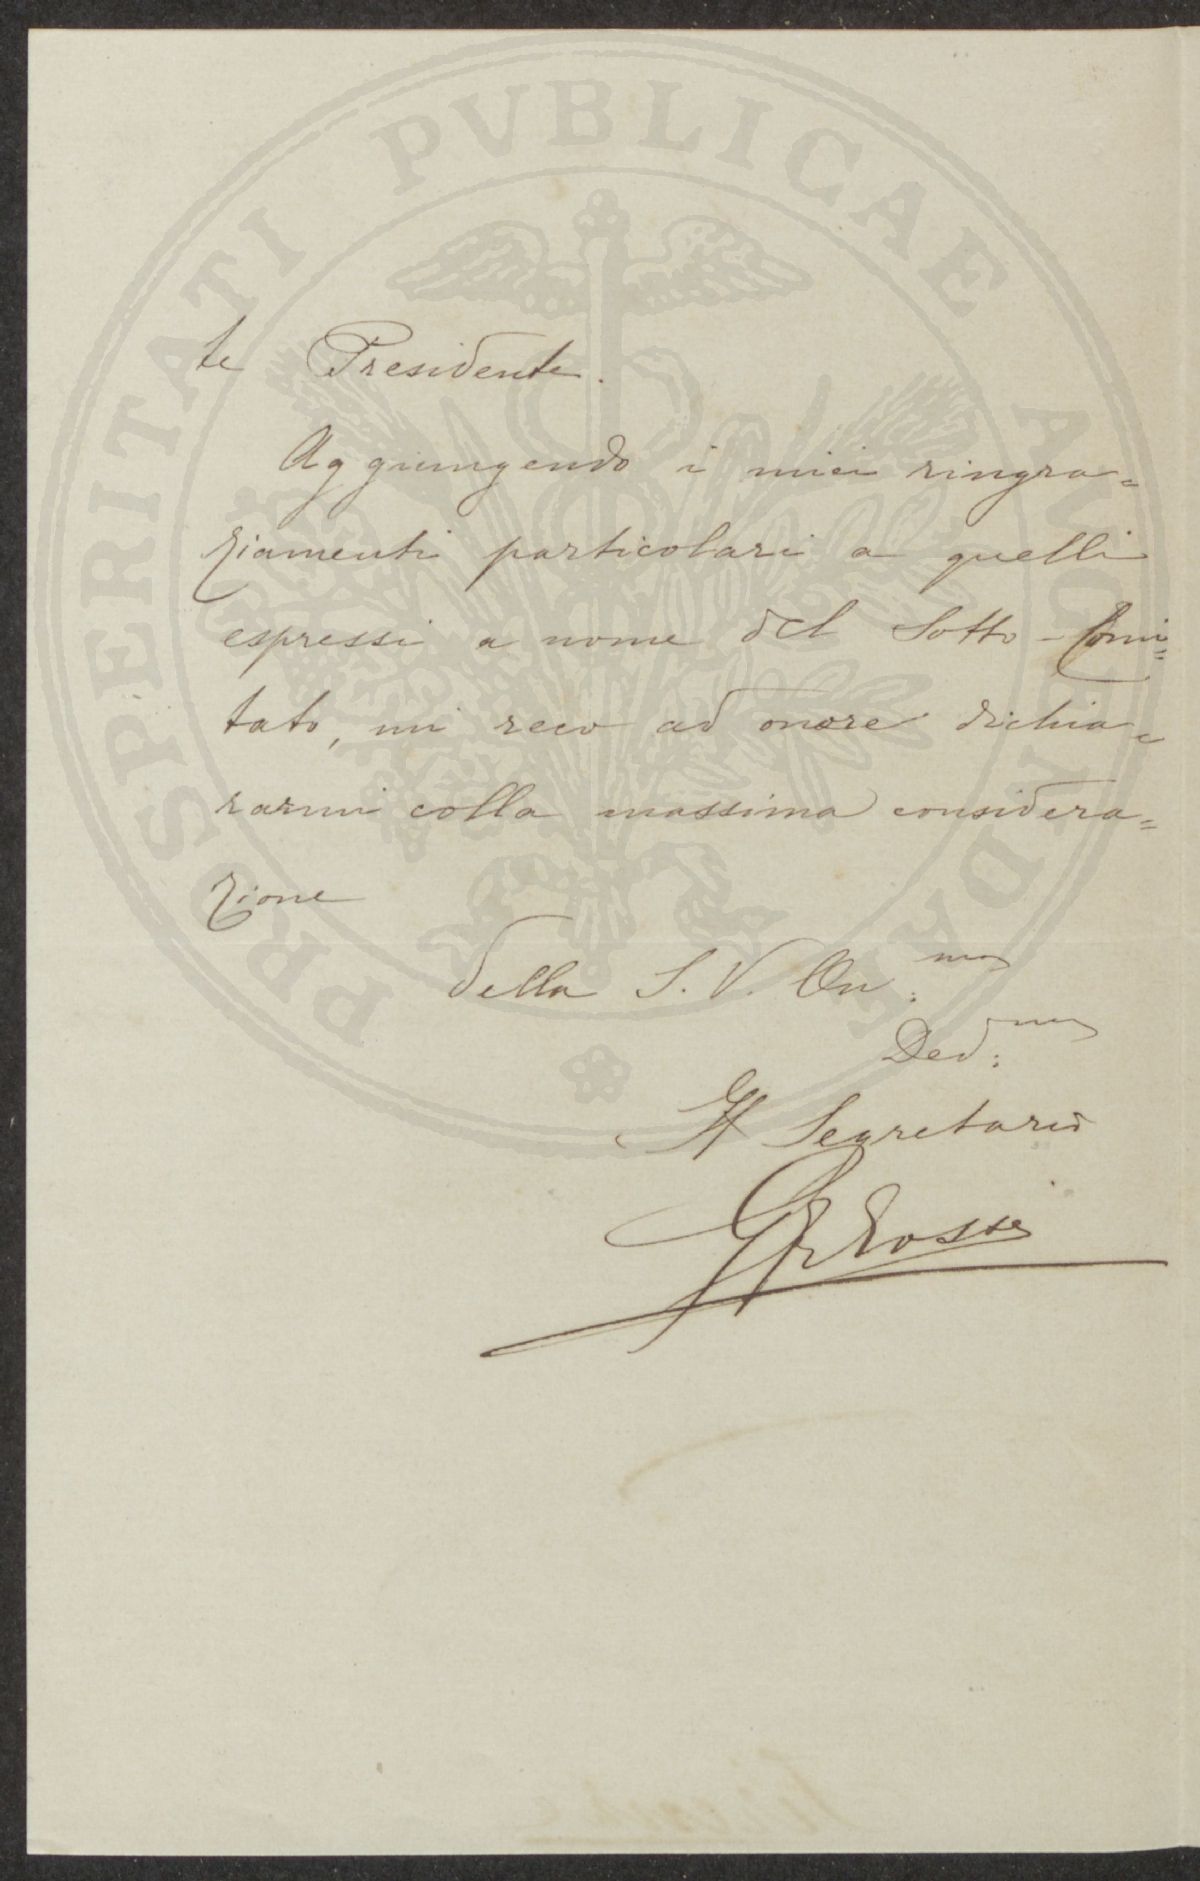 PROSPERITATI PVBLICAE AVGENDAE
te Presidente.
Aggiungendo i miei ringra=
ziamenti particolari a quelli
espressi a nome del Sotto-Comi=
tato, mi reco ad onore dichia=
rarmi colla massima considera=
zione
della S. V. On:ma
Ded:mo
Il Segretario
Rossi